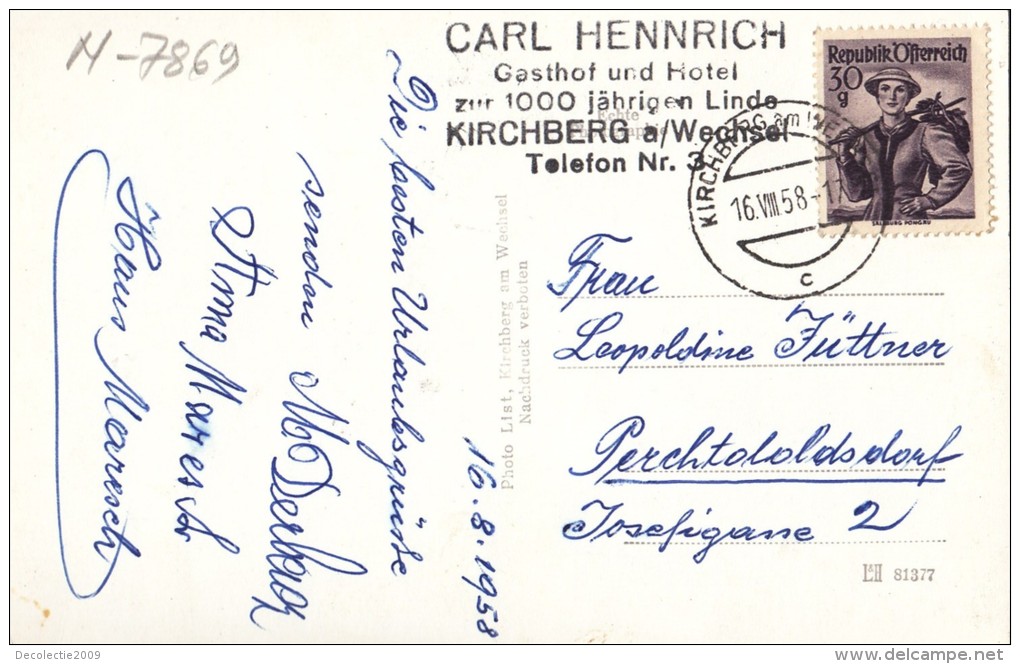 N-7869
CARL HENNRICH
Gasthof und Hotel
zur 1000 jährigen Linde
KIRCHBERG a/Wechsel
Telefon Nr. 3
Echte
Republik Österreich
30
g
SALZBURG PONGAU
KIRCHBERG am WE
16.VIII.58-17
c
Die besten Urlaubsgrüße
senden
Anna Maresch
Hans Maresch
16.8.1958
Photo List, Kirchberg am Wechsel
Nachdruck verboten
Frau
Leopoldine Jüttner
Perchtololdsdorf
Josefigasse 2
81377
Decolectie2009
delcampe.net